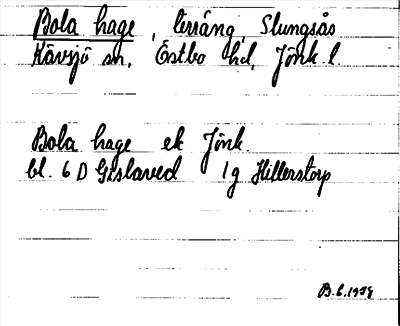 Bola hage, terräng, Slungsås
Kävsjö sn, Östbo hd, Jönk. l.
Bola hage ek Jönk.
bl. 6 D Gislaved 1g Hillerstorp